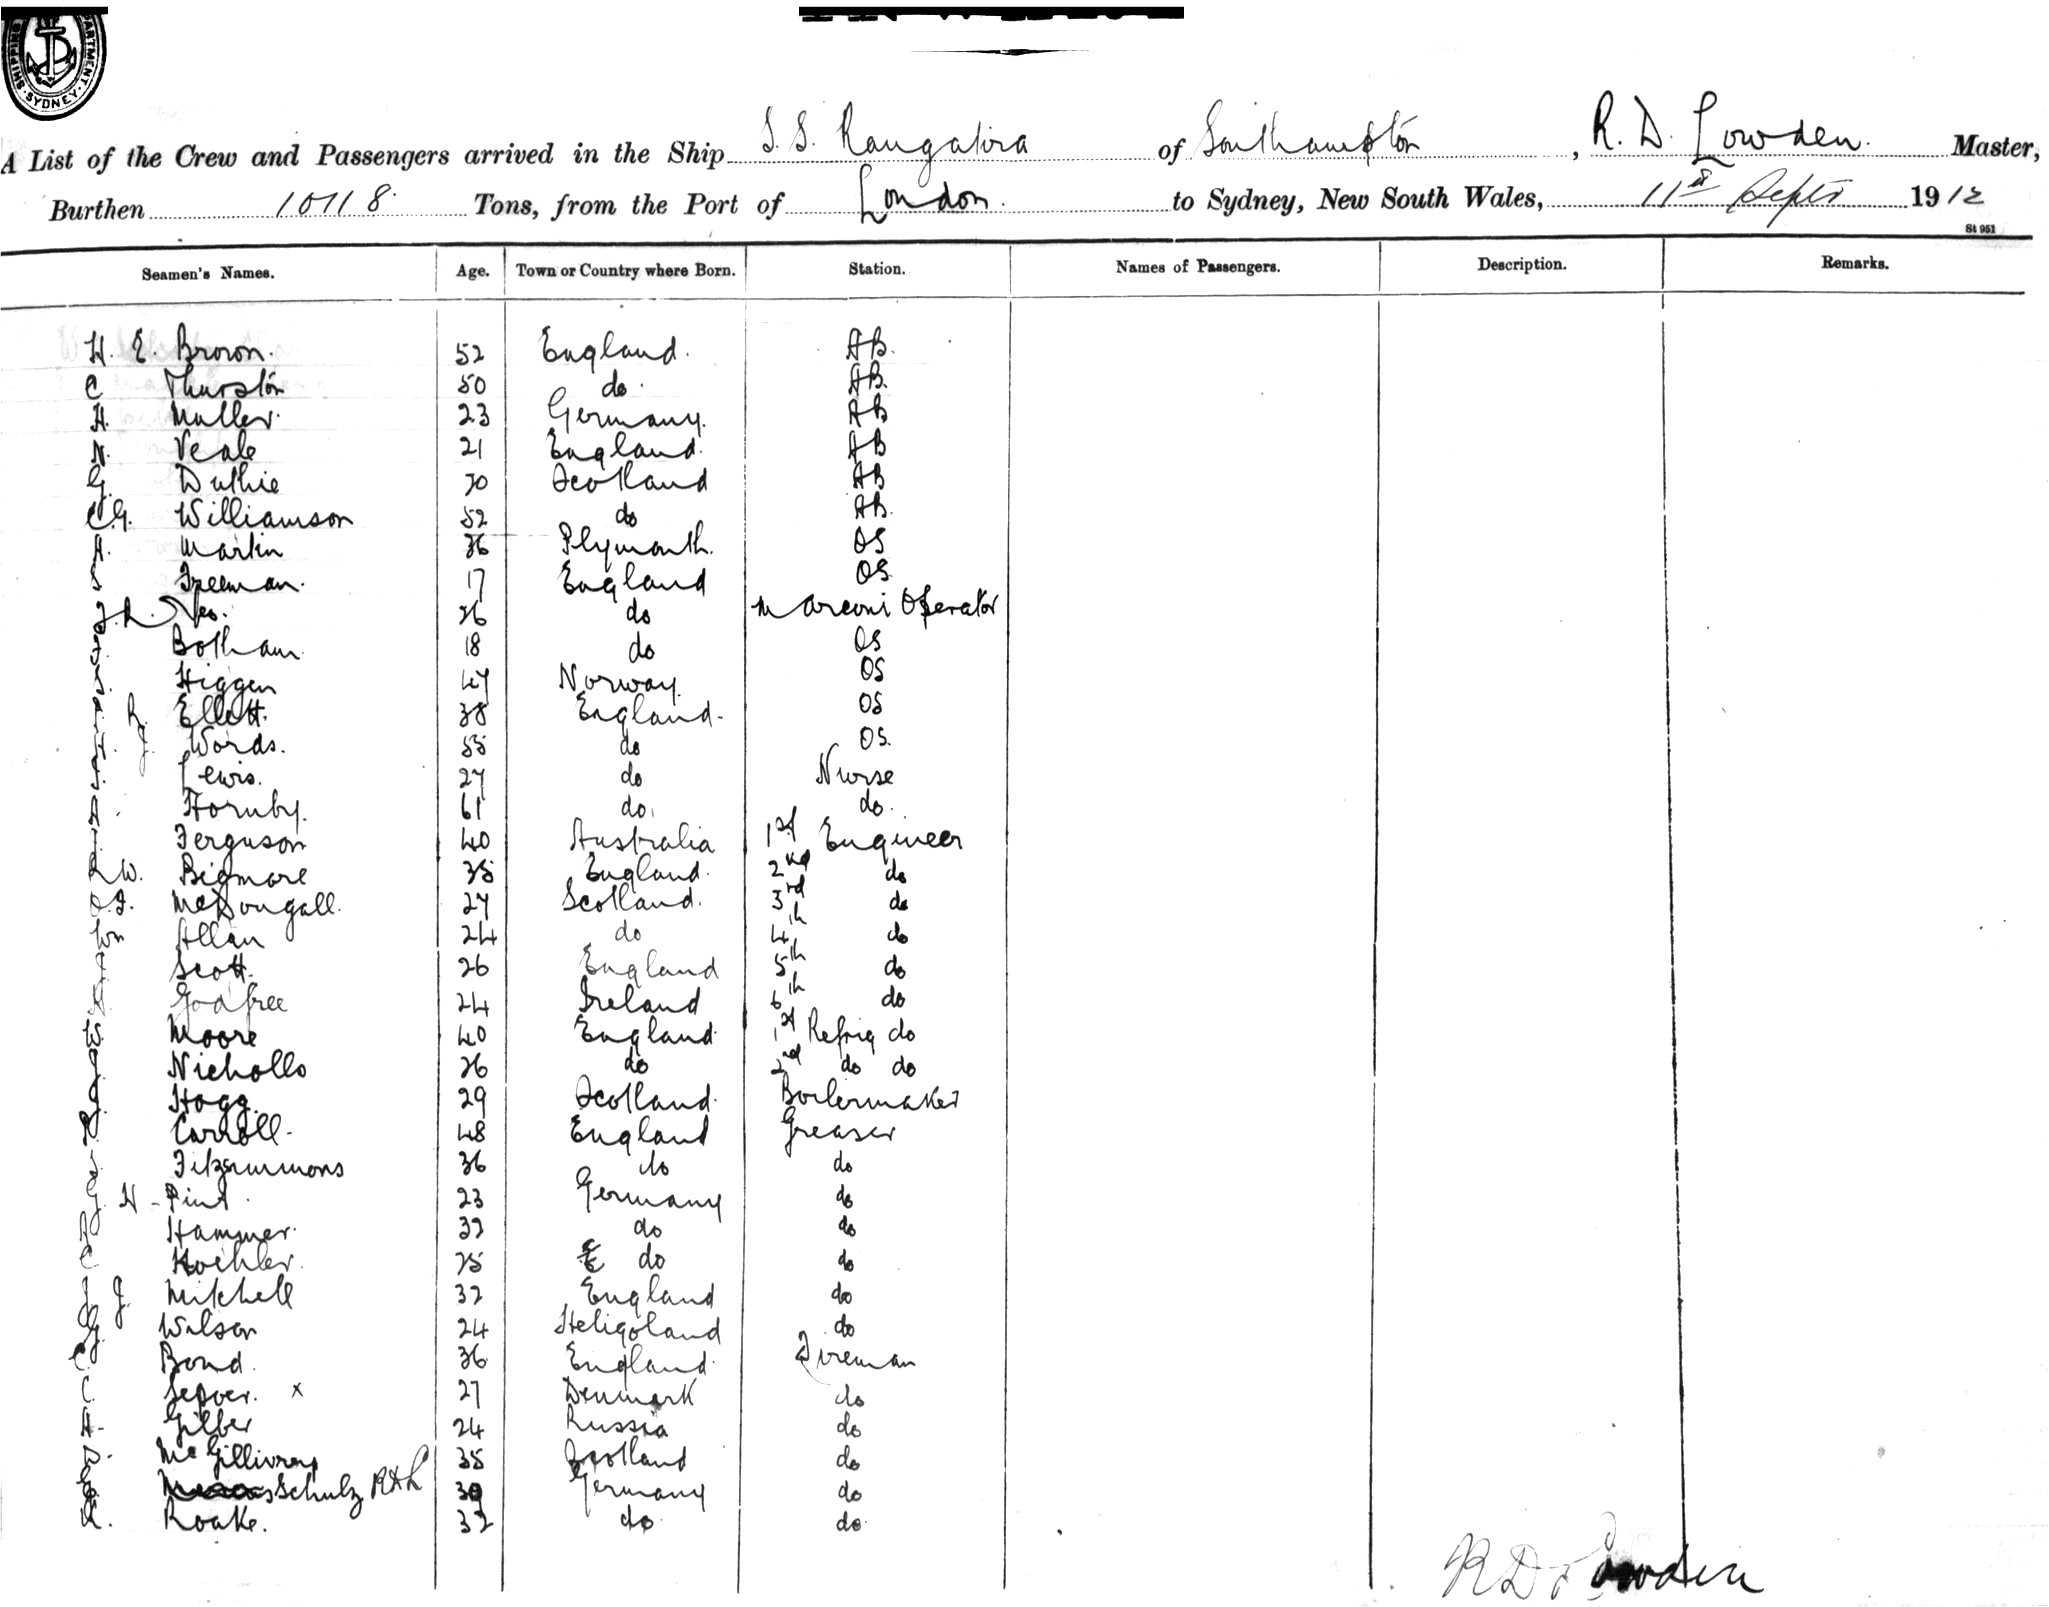 SHIPPING DEPARTMENT. SYDNEY.
A List of the Crew and Passengers arrived in the Ship S.S. Rangatira of Southampton, R. D. Lowden Master,
Burthen 10118 Tons, from the Port of London to Sydney, New South Wales, 11th Septr 1912
St 951
Seamen's Names. Age. Town or Country where Born. Station. Names of Passengers. Description. Remarks.
H. E. Brown. 52 England. AB.
C Thurston 50 do. AB.
H. Muller. 23 Germany. AB
Veale 21 England. AB
G. Duthie 30 Scotland AB
C.G. Williamson 52 do AB.
A. Martin 36 Plymouth. OS
Freeman. 17 England OS.
26 do Marconi Operator
Botham 18 do OS
Higgen 47 Norway. OS
Ellett. 38 England. OS
Words. 55 do OS.
Lewis. 27 do Nurse
Hornby. 61 do. do.
Ferguson 40 Australia 1st Engineer
R W. Bigmore 35 England. 2nd do
J. McDougall. 27 Scotland. 3rd do
Wm Allan 24 do 4th do
Scott. 26 England 5th do
Godfree 24 Ireland 6th do
Moore 40 England 1st Refrig do
Nicholls 26 do 2nd do do
Hogg. 29 Scotland. Boilermaker
Carroll. 48 England Greaser
Fitzsimmons 36 do do
H - Pint. 23 Germany do
Hammer. 32 do do
Koehler. 25 do do
G. Mitchell 32 England do
Wilson 24 Heligoland do
Bond. 36 England. Fireman
x 27 Denmark do
H. Gilber 24 Russia do
McGillivray 35 Scotland do
Schulz RDL 30 Germany do
Roake. 32 do do
R D Lowden